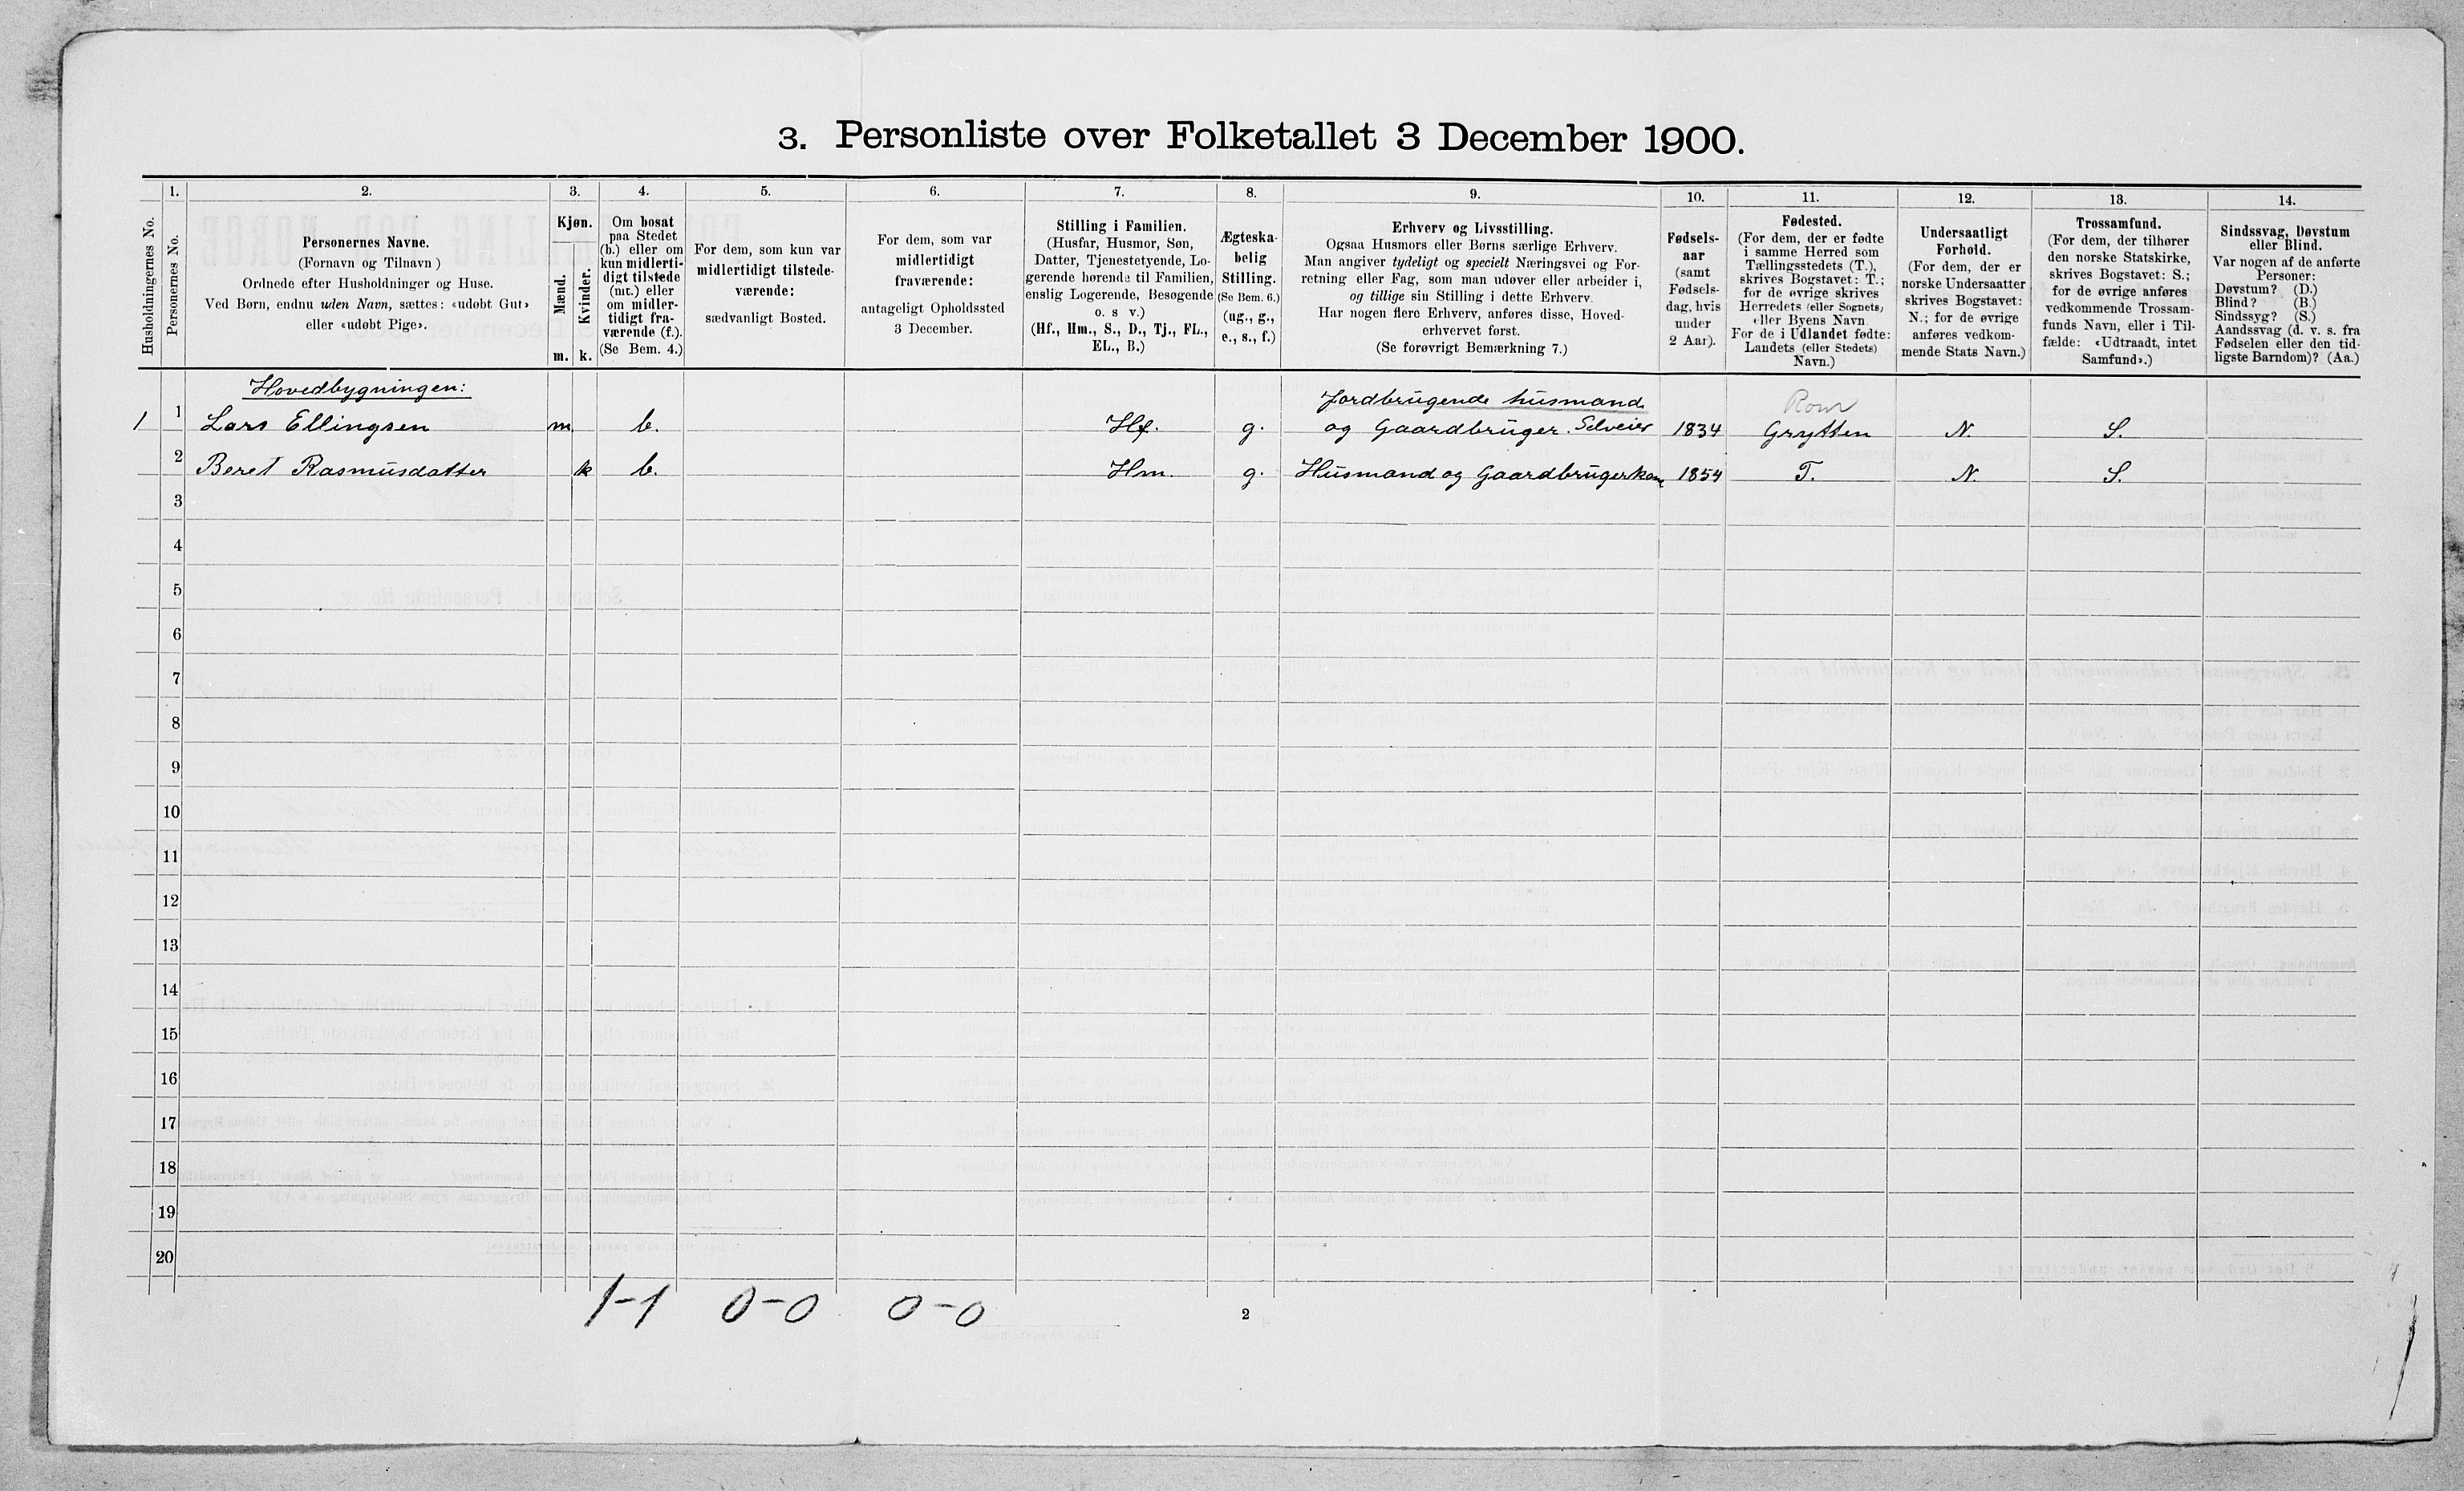 3. Personliste over Folketallet 3 December 1900.
Husholdningernes No.
1.
Personernes No.
2.
Personernes Navne.
(Fornavn og Tilnavn )
Ordnede efter Husholdninger og Huse.
Ved Børn, endnu uden Navn, sættes: «udøbt Gut»
eller «udøbt Pige».
3.
Kjøn.
Mænd.
m.
Kvinder.
k.
4.
Om bosat
paa Stedet
(b.) eller om
kun midlerti-
digt tilstede
(mt.) eller
om midler-
tidigt fra-
værende (f.).
(Se Bem. 4.)
5.
For dem, som kun var
midlertidigt tilstede-
værende:
sædvanligt Bosted.
6.
For dem, som var
midlertidigt
fraværende:
antageligt Opholdssted
3 December.
7.
Stilling i Familien.
(Husfar, Husmor, Søn,
Datter, Tjenestetyende, Lo-
gerende hørende til Familien,
enslig Logerende, Besøgende
o. s v.)
(Hf., Hm., S., D., Tj., FL.,
EL., B.)
8.
Ægteska-
belig
Stilling.
(Se Bem. 6.)
(ug., g.,
e., s., f.)
9.
Erhverv og Livsstilling.
Ogsaa Husmors eller Børns særlige Erhverv.
Man angiver tydeligt og specielt Næringsvei og For-
retning eller Fag, som man udøver eller arbeider i,
og tillige sin Stilling i dette Erhverv.
Har nogen flere Erhverv, anføres disse, Hoved-
erhvervet først.
(Se forøvrigt Bemærkning 7.)
10.
Fødsels-
aar
(samt
Fødsels-
dag, hvis
under
2 Aar).
11.
Fødested.
(For dem, der er fødte
i samme Herred som
Tællingsstedets (T.),
skrives Bogstavet: T.;
for de øvrige skrives
Herredets (eller Sognets)
eller Byens Navn
For de i Udlandet fødte:
Landets (eller Stedets)
Navn.)
12.
Undersaatligt
Forhold.
(For dem, der er
norske Undersaatter
skrives Bogstavet:
N.; for de øvrige
anføres vedkom-
mende Stats Navn.)
13.
Trossamfund.
(For dem, der tilhører
den norske Statskirke,
skrives Bogstavet: S.;
for de øvrige anføres
vedkommende Trossam-
funds Navn, eller i Til-
fælde: «Udtraadt, intet
Samfund».)
14.
Sindssvag, Døvstum
eller Blind.
Var nogen af de anførte
Personer:
Døvstum? (D.)
Blind? (B.)
Sindssyg? (S.)
Aandssvag (d. v. s. fra
Fødselen eller den tid-
ligste Barndom)? (Aa.)
Hovedbygningen:
Jordbrugende husmand
1 1 Lars Ellingsen m b. Hf. g. og Gaardbruger. Selveier 1834 Grytten N. S.
2 Beret Rasmusdatter k b. Hm. g. Husmand og Gaardbrugerkone 1854 T. N. S.
3
4
5
6
7
8
9
10
11
12
13
14
15
16
17
18
19
20
1-1 0-0 0-0
2